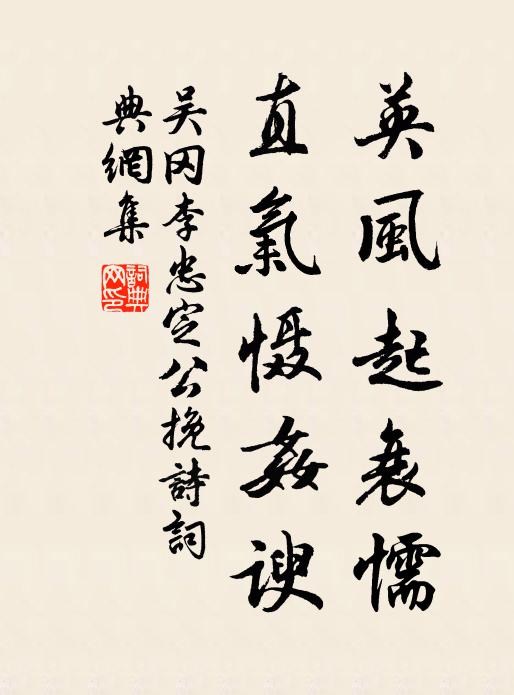 英風起衰懦
直氣慑姦諛
吴冈李忠定公挽詩詞
典網集
詞典網印